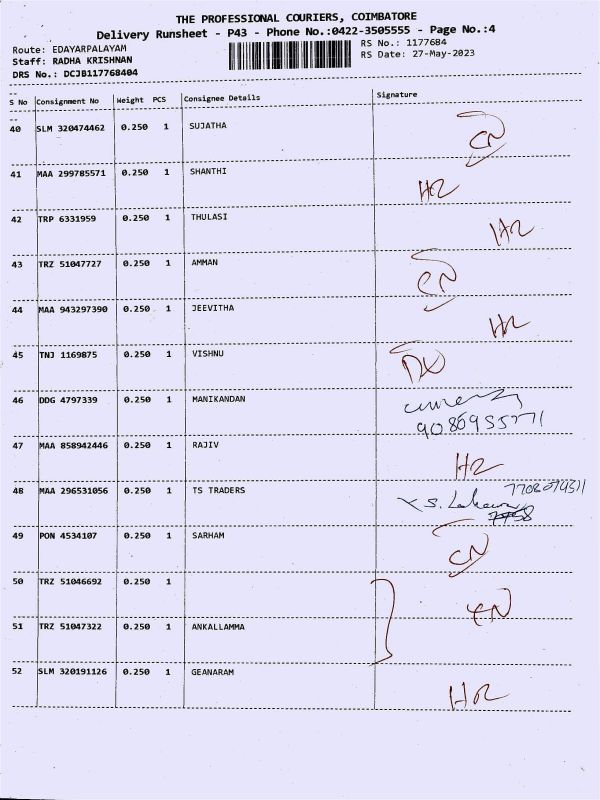 THE PROFESSIONAL COURIERS, COIMBATORE
Delivery Runsheet - P43 - Phone No.:0422-3505555 - Page No.:4
Route: EDAYARPALAYAM RS No.: 1177684
Staff: RADHA KRISHNAN RS Date: 27-May-2023
DRS No.: DCJB117768404
S No Consignment No Weight PCS Consignee Details Signature
40 SLM 320474462 0.250 1 SUJATHA CN
41 MAA 299785571 0.250 1 SHANTHI HR
42 TRP 6331959 0.250 1 THULASI HR
43 TRZ 51047727 0.250 1 AMMAN CN
44 MAA 943297390 0.250 1 JEEVITHA HR
45 TNJ 1169875 0.250 1 VISHNU
46 DDG 4797339 0.250 1 MANIKANDAN
47 MAA 858942446 0.250 1 RAJIV HR
48 MAA 296531056 0.250 1 TS TRADERS
49 PON 4534107 0.250 1 SARHAM CN
50 TRZ 51046692 0.250 1
51 TRZ 51047322 0.250 1 ANKALLAMMA
52 SLM 320191126 0.250 1 GEANARAM HR